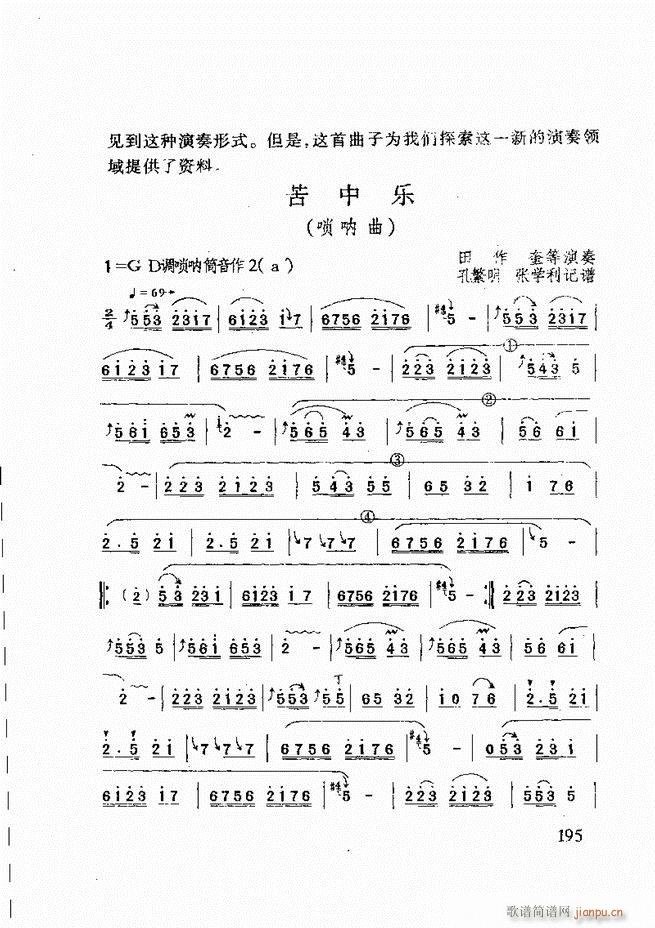 见到这种演奏形式。但是，这首曲子为我们探索这一新的演奏领
域提供了资料。
苦中乐
(唢呐曲)
1=G D调唢呐筒音作2(a)
田作 等演奏
孔繁明 张学利记谱
♩=69
2/4 553 2317 | 6123 17 | 6756 2176 | 5 - | 553 2317 |
6123 17 | 6756 2176 | 5 - | 223 2123 | ① 543 5 |
561 653 | 2 - | 565 43 | 565 43 | ② 56 61 |
2 - | 223 2123 | 543 55 | ③ 65 32 | 1 76 |
2. 5 21 | 2. 5 21 | 7 7 7 | ④ 6756 2176 | 5 - |
‖: (2) 53 231 | 6123 17 | 6756 2176 | 5 - :‖ 223 2123 |
553 5 | 561 653 | 2 - | 565 43 | 565 43 | 56 61 |
2 - | 223 2123 | 553 55 | 65 32 | 10 76 | 2. 5 21 |
2. 5 21 | 7 7 7 | 6756 2176 | 5 - | 053 231 |
6123 17 | 6756 2176 | 5 - | 223 2123 | 553 5 |
195
歌谱简谱网 jianpu.cn